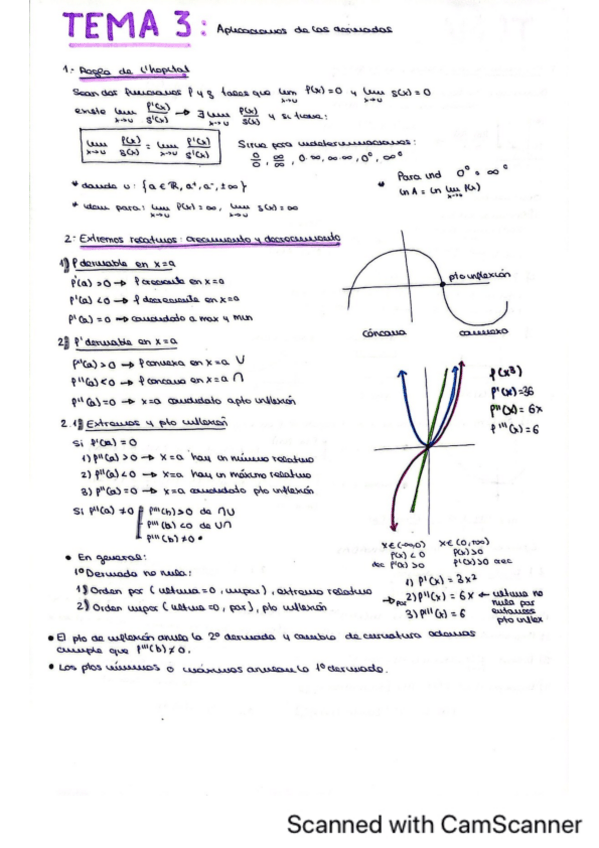 TEMA 3: Aplicaciones de las derivadas
1.- Regla de l'hopital
Sean dos funciones f y g tales que lim x→u f(x)=0 y lim x→u g(x)=0
existe lim x→u f'(x)/g'(x) → ∃ lim x→u f(x)/g(x) y si tiene:
lim x→u f(x)/g(x) = lim x→u f'(x)/g'(x)
Sirve para indeterminaciones:
0/0, ∞/∞, 0·∞, ∞-∞, 0⁰, ∞⁰
* donde u: {a ∈ ℝ, a⁺, a⁻, ±∞}
* idem para: lim x→u f(x)=∞, lim x→u g(x)=∞
• Para ind 0⁰ ∞⁰
ln A = ln lim x→u f(x)
2.- Extremos relativos: crecimiento y decrecimiento
1) f derivable en x=a
f'(a) >0 → f creciente en x=a
f'(a) <0 → f decreciente en x=a
f'(a) = 0 → candidato a max y min
pto inflexión
cóncava
convexa
2) f' derivable en x=a
f''(a) >0 → f convexa en x=a ∪
f''(a) <0 → f concava en x=a ∩
f''(a) =0 → x=a candidato a pto inflexión
f(x³)
f'(x)=36
f''(x)= 6x
f'''(x)=6
2.1) Extremos y pto inflexión
Si f'(a) = 0
1) f''(a) >0 → x=a hay un mínimo relativo
2) f''(a) <0 → x=a hay un máximo relativo
3) f''(a) =0 → x=a candidato pto inflexión
Si f''(a) ≠0
f'''(b)>0 de ∩∪
f'''(b) <0 de ∪∩
f'''(b) ≠0 •
x∈(-∞,0) x∈(0,+∞)
f(x) < 0 f(x)>0
f'(a) >0 f'(x)>0 crec
• En general:
1º Derivada no nula:
1) Orden par (ultima =0, impar), extremo relativo
2) Orden impar (ultima =0, par), pto inflexión
1) f'(x) = 3x²
→ par 2) f''(x) = 6x ← ultima no nula par entonces pto inflex
3) f'''(x) = 6
• El pto de inflexión anula la 2º derivada y cambia de curvatura además
cumple que f'''(b) ≠ 0.
• Los ptos mínimos o máximos anulan la 1º derivada.
Scanned with CamScanner